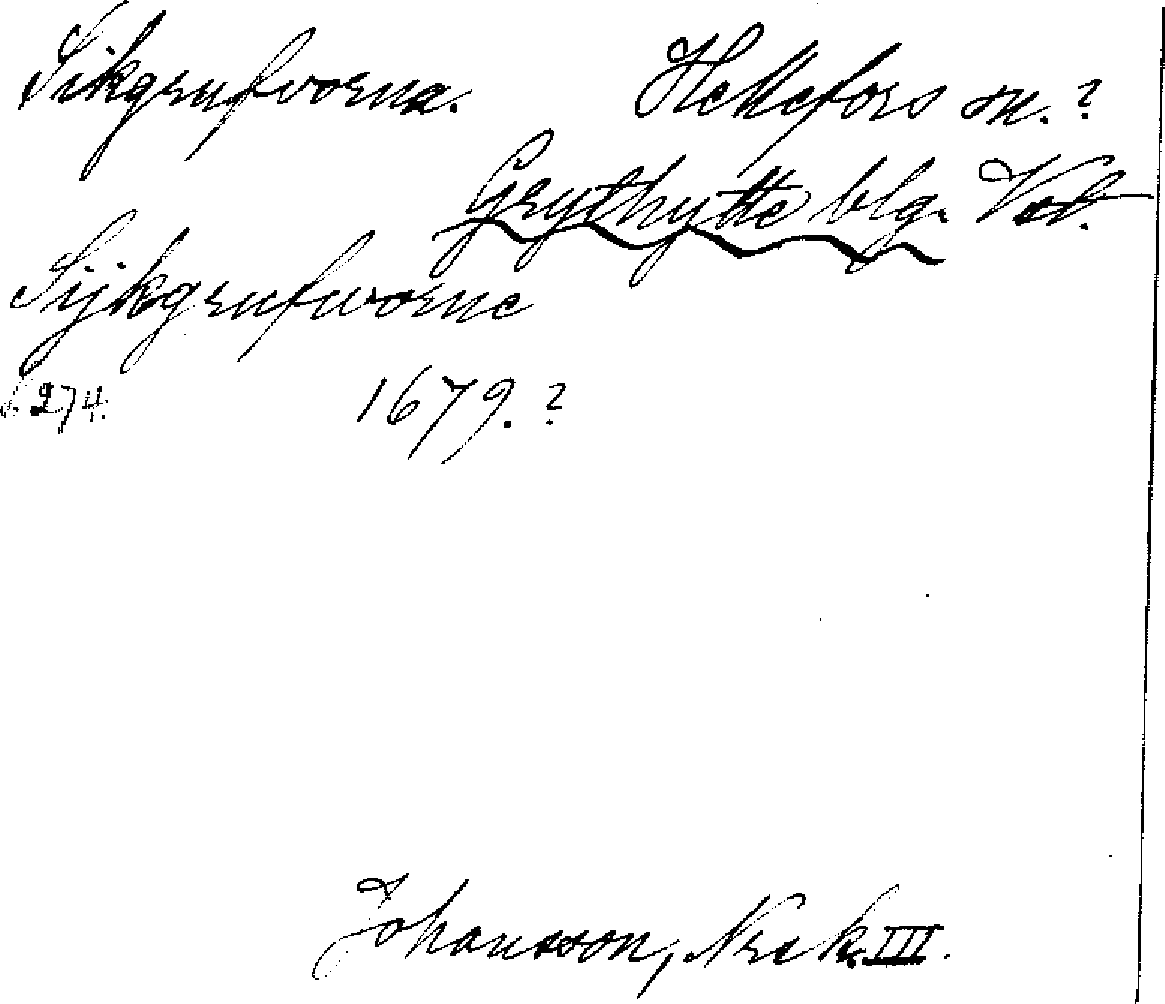 Sikgrufvorna. Hellefors sn. ?
Grythytte blg. Vstl.
Sijkgrufworne
s. 274. 1679. ?
Johansson, Nrak. III.